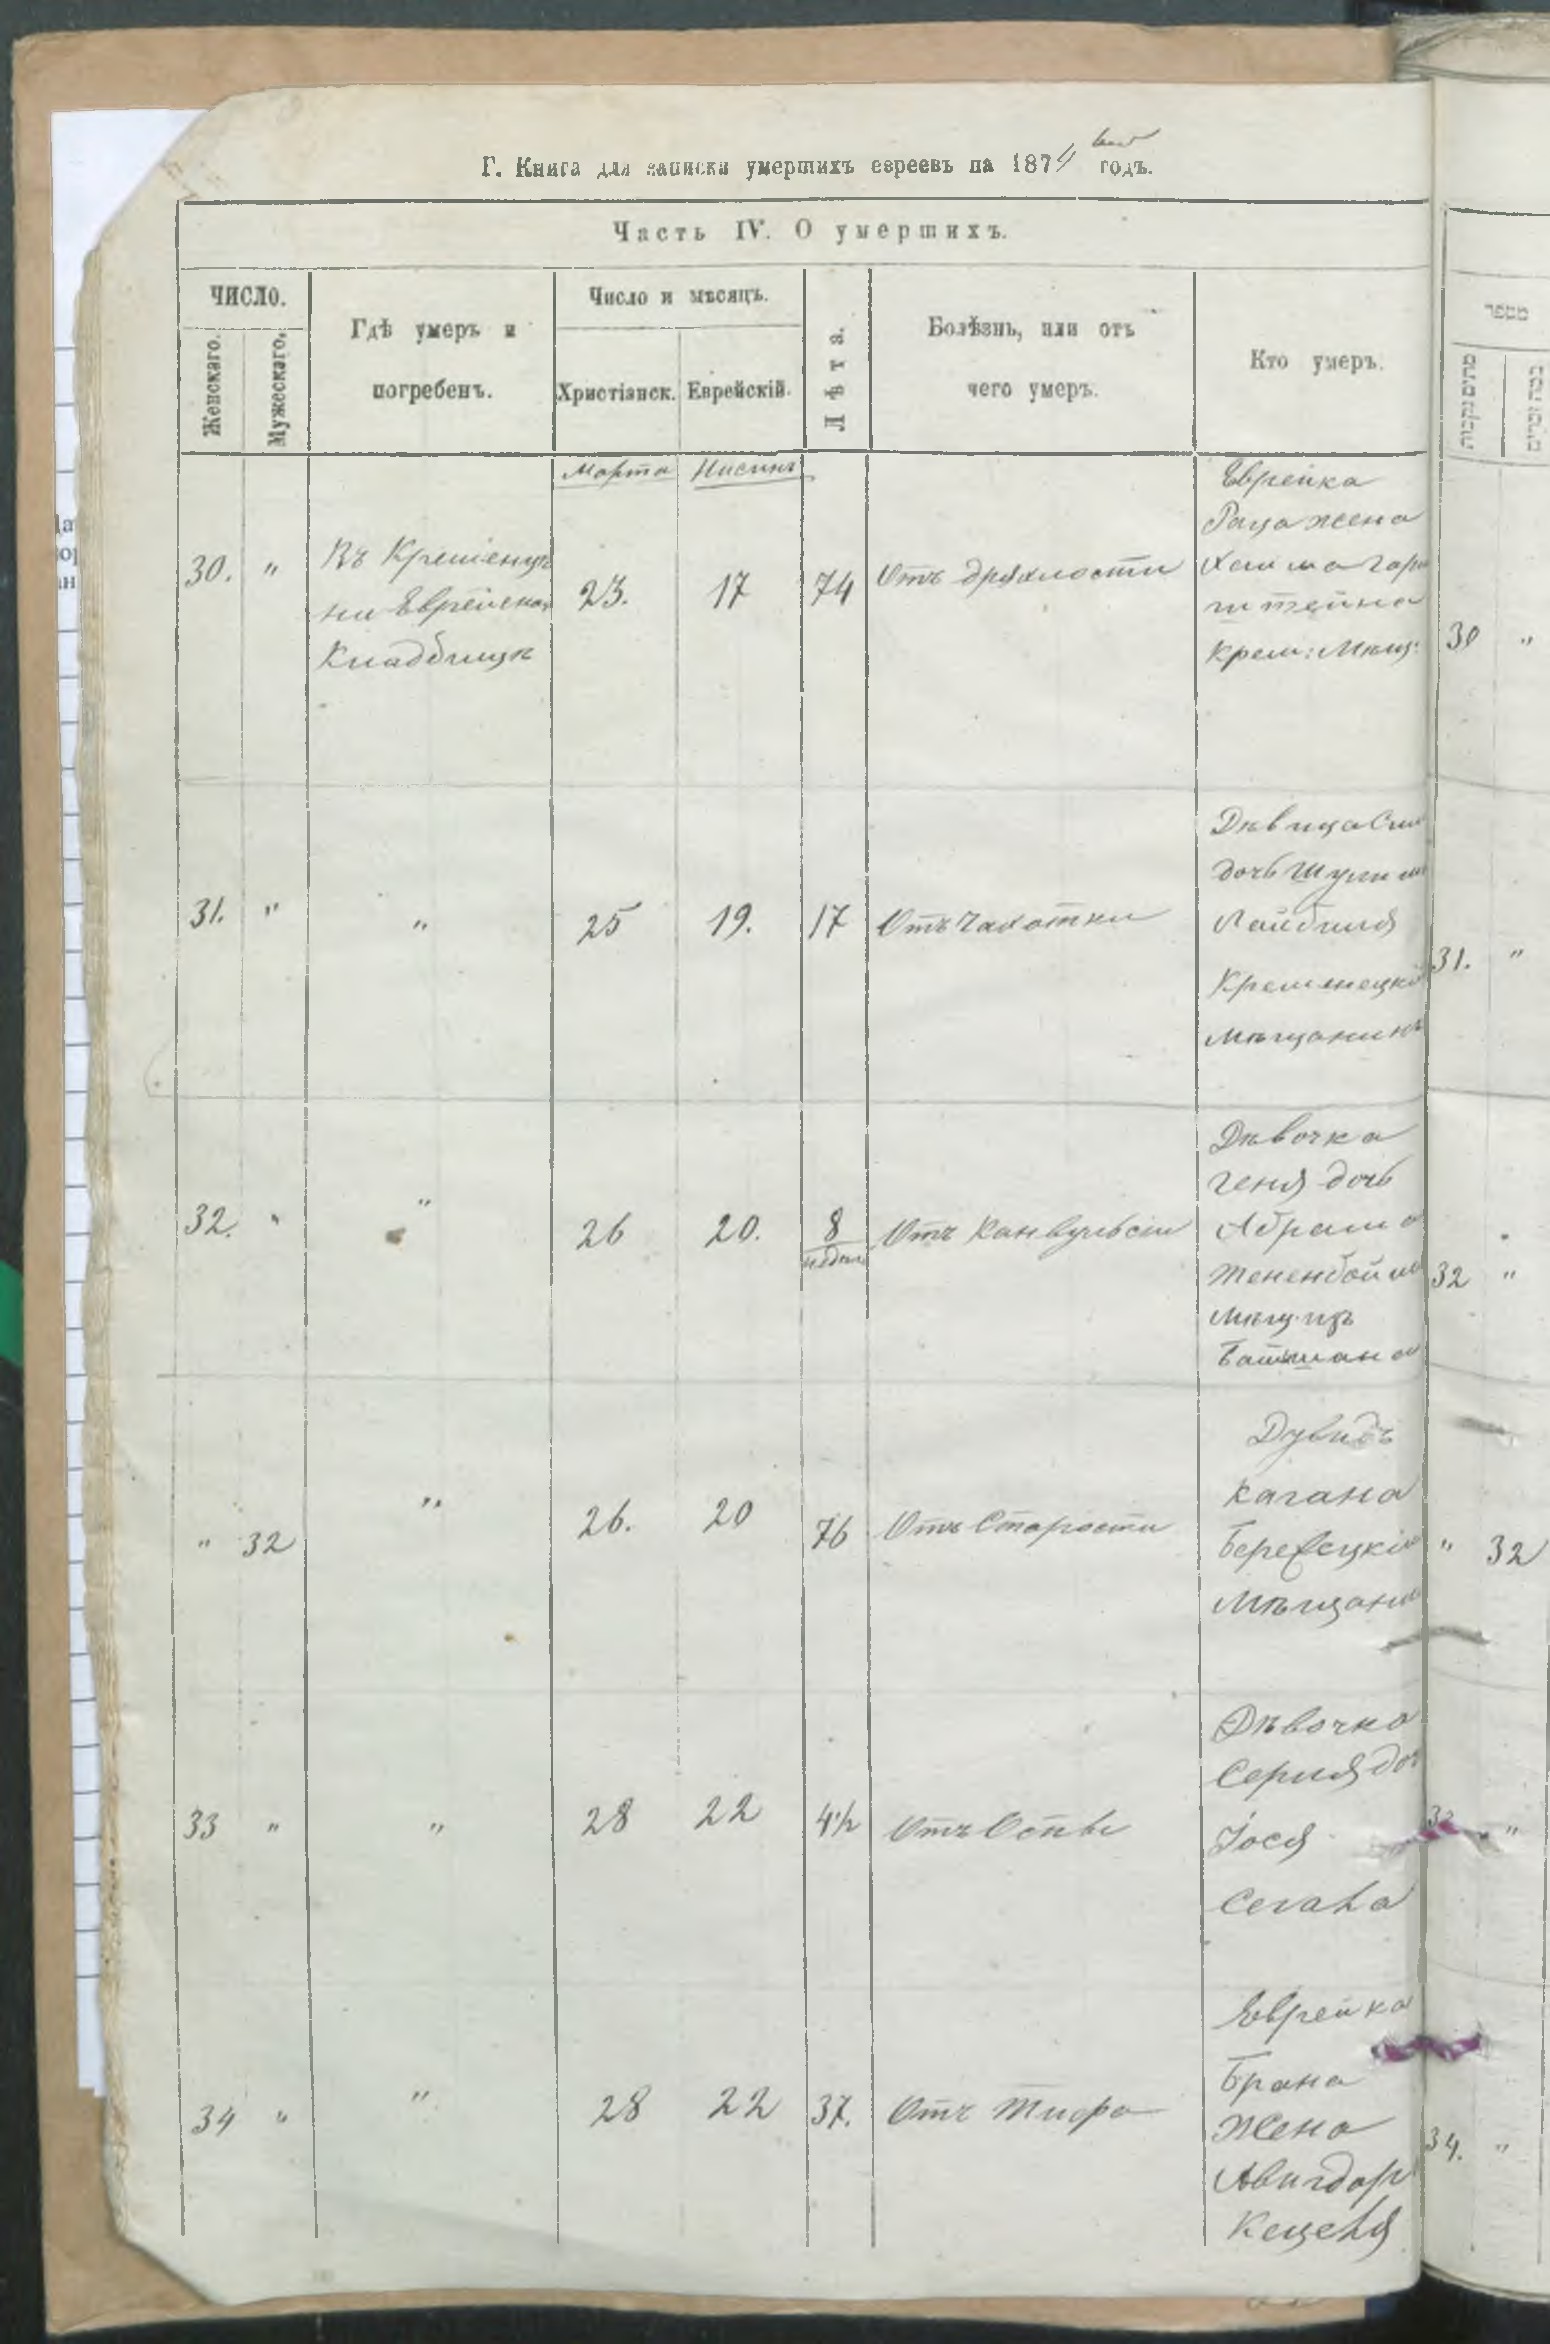 Г. Книга для записки умершихъ евреевъ на 1874 годъ.
Часть IV. О умершихъ.
ЧИСЛО.
Женскаго.
Мужескаго.
Гдѣ умеръ и
погребенъ.
Число и мѣсяцъ.
Христіанск.
Еврейскій.
Лѣта.
Болѣзнь, или отъ
чего умеръ.
Кто умеръ.
מספר
Марта Нисинъ
30. " 
Въ Кременцѣ
на Еврейском
Кладбищѣ
23. 17 74 Отъ дряхлости
Еврейка
Раца жена
Хаима Гори
штейна
Крем: Мѣщ:
30 "
31. " " 25 19. 17 Отъ Чахотки
Дѣвица
дочь
Лайбиля
Кременецкій
Мѣщанинъ
31. "
32. " " 26 20. 8
недель
Отъ Канвульсіи
Дѣвочка
Геня дочь
Абрама
Тененбойма
Мѣщ. изъ
32 "
" 32 " 26. 20 76 Отъ Старости
Дувидъ
Кагана
Березецкій
Мѣщани
" 32
33 " " 28 22 4½ Отъ Оспы
Дѣвочка
Серия доч
Іося
Сегала
"
34 " " 28 22 37. Отъ Тифа
Еврейка
Брана
Жена
Авигдор
Кецеля
34. "